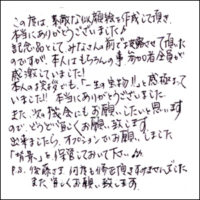 この度は、素敵な似顔絵を作成して頂き、
本当にありがとうございました♪
記念品として みなさんの前で 披露させて頂いた
のですが、本人はもちろんの事 参加者全員が
感激していました!
本人の 実母でも、"一生の宝物!!"と 感極まって
いました!! 本当にありがとうございました。
また、次の機会にもお願いしたいと思います
ので、どうぞ宜しくお願い致します。
出来ましたら、オプションでお願いしました
を保管しておいて下さい
P.S. 後藤さま 何度も修正頂きすみませんでした
また 宜しくお願い致します